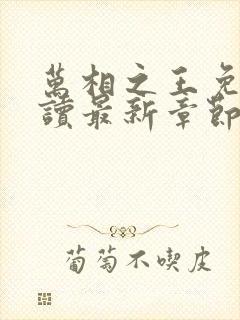 萬相之王免
讀最新章節
葡萄不喫皮